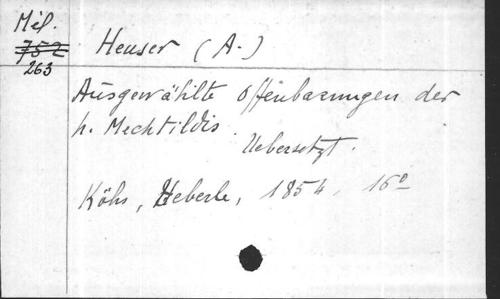 Mil.
752
263
Heuser (A.)
Ausgewählte Offenbarungen der
h. Mechtildis.
Uebersetzt.
Köhs, Heberle, 1854, 16°